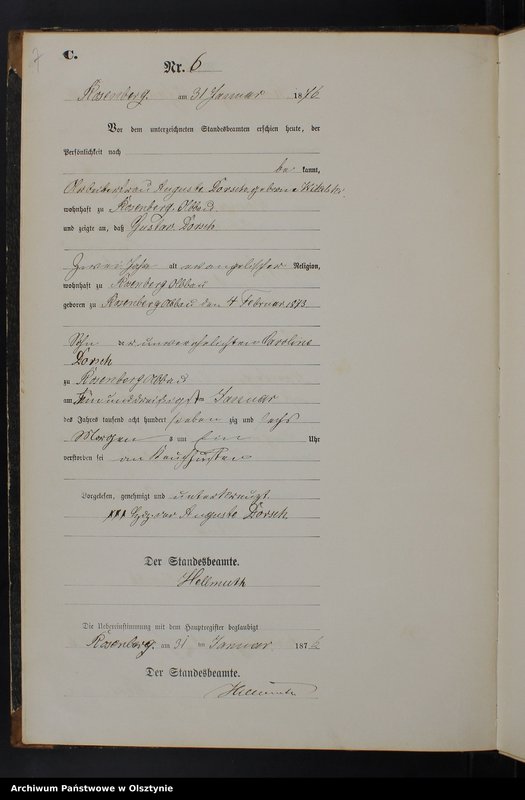 7
C.
Nr. 6
Rosenberg am 31 Januar 1876
Vor dem unterzeichneten Standesbeamten erschien heute, der
Persönlichkeit nach
be kannt,
Arbeiterfrau Auguste Dorsch, geborene
wohnhaft zu Rosenberg Abbau
und zeigte an, daß Gustav Dorsch
Zwei Jahr alt evangelischer Religion,
wohnhaft zu Rosenberg Abbau
geboren zu Rosenberg Abbau den 4 Februar 1873
Sohn der unverehelichten Caroline
Dorsch
zu Rosenberg Abbau
am Januar
des Jahres tausend acht hundert sieben zig und sechs
Morgens um Uhr
verstorben sei an Keuchhusten
Vorgelesen, genehmigt und
xxx Auguste Dorsch
Der Standesbeamte.
Hellmuth
Die Uebereinstimmung mit dem Hauptregister beglaubigt
Rosenberg am 31 ten Januar 1876
Der Standesbeamte.
Hellmuth
Archiwum Państwowe w Olsztynie